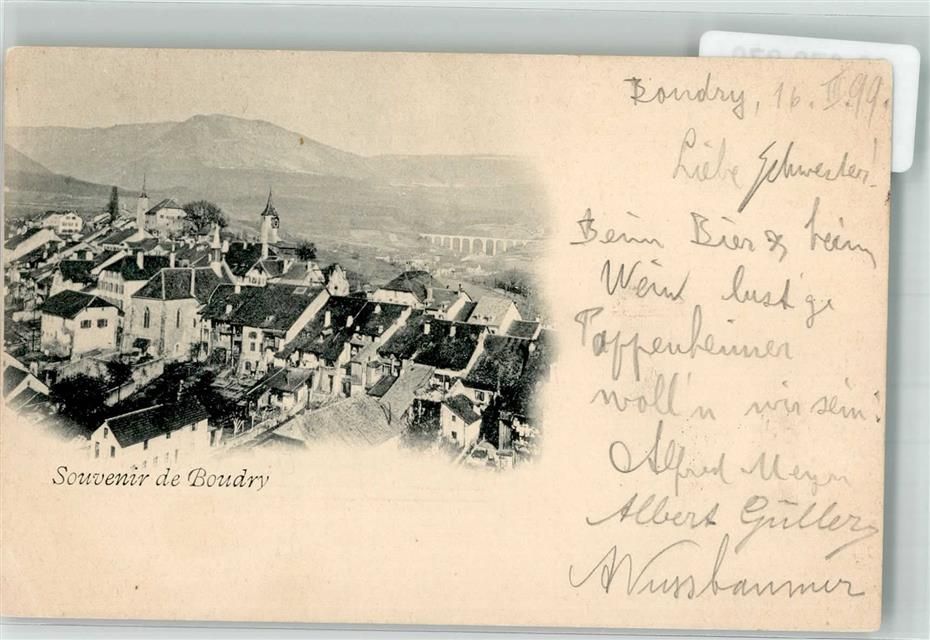 Souvenir de Boudry
Boudry, 16. II. 99.
Liebe Schwester!
Beim Bier & beim
Wein lustige
Pappenheimer
woll'n wir sein!
Alfred Meyer
Albert Güller
A Nussbaumer